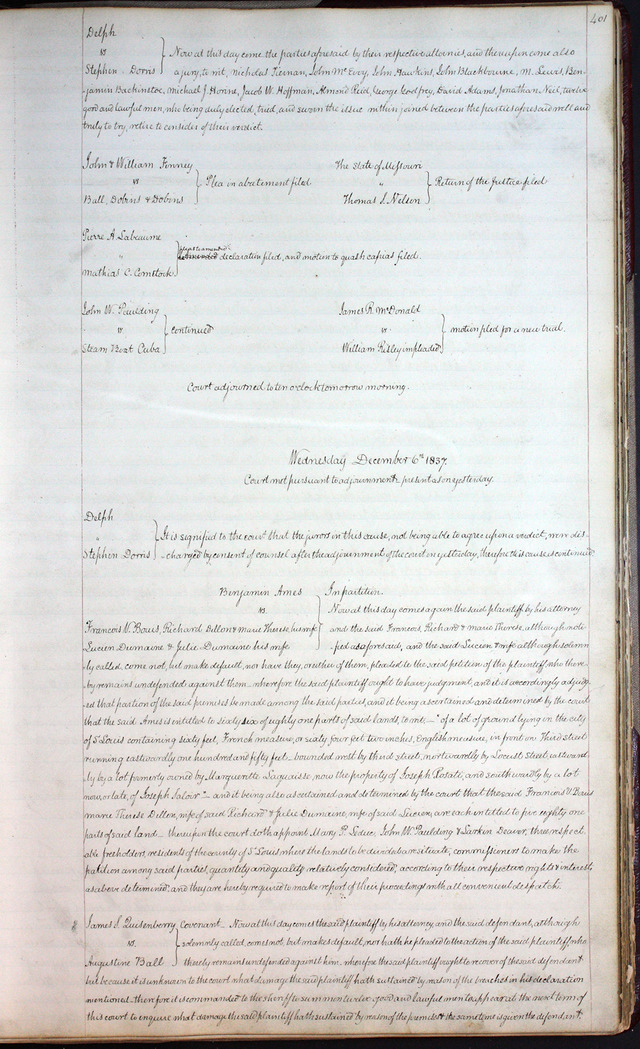 401
Delph
vs
Stephen Dorris } Now at this day come the parties aforesaid by their respective attornies, and thereupon come also
a jury, to wit, Nicholas Tiernan, John McEvoy, John Hawkins, John Blackbourne, M. Lewis, Ben-
jamin Backinstoe, Michael J. Horne, Jacob W. Hoffman, Almond Reid, George Godfrey, David Adams, Jonathan Neil, twelve
good and lawful men, who being duly elected, tried, and sworn the issue within joined between the parties aforesaid well and
truly to try, retire to consider of their verdict.
John & William Finney
vs
Ball, Dobins & Dobins } Plea in abatement filed
The State of Missouri
"
Thomas S. Nelson } Return of the Justice filed
Pierre A Labeaume
"
Mathias C. Comstock } declaration filed, and motion to quash capias filed.
John W. Paulding
vs.
Steam Boat Cuba } continued
James R. McDonald
vs
William Risley impleaded } motion filed for a new trial.
Court adjourned to ten o'clock tomorrow morning.
Wednesday December 6th 1837.
Court met pursuant to adjournment present as on yesterday.
Delph
"
Stephen Dorris } It is signified to the court that the jurors in this cause, not being able to agree upon a verdict, were dis-
-charged by consent of counsel after the adjournment of the court on yesterday, therefore this cause is continued
Benjamin Ames
vs.
Francois W. Bouis, Richard Dillon & Marie Therese, his wife
Lucien Dumaine & Julie Dumaine his wife
In partition.
Now at this day comes again the said plaintiff by his attorney
and the said Francois, Richard & Marie Therese, although
as aforesaid, and the said Lucien & wife although solemn-
ly called, come not, but make default, nor have they, or either of them, pleaded to the said petition of the plaintiff, who there-
by remains undefended against them - wherefore the said plaintiff ought to have judgment, and it is accordingly adjudg-
ed that partition of the said premises be made among the said parties, and it being ascertained and determined by the court
that the said Ames is entitled to sixty six of eighty one parts of said land, to wit, - "of a lot of ground lying in the city
of St Louis containing sixty feet, French measure, or sixty four feet two inches, English measure, in front on Third street
running eastwardly one hundred and fifty feet - bounded west by third street, northwardly by Locust Street, eastward-
ly by a lot formerly owned by Marguerette Laquaisse, now the property of Joseph Rosati, and southwardly by a lot
now, or late, of Joseph Salois" - and it being also ascertained and determined by the court that the said Francois W. Bouis
Marie Therese Dillon, wife of said Richard & Julie Dumaine, wife of said Lucien, are each intitled to five eighty one
parts of said land - thereupon the court doth appoint Mary P. Leduc, John W. Paulding & Larkin Deaver, three respect-
able freeholders, residents of the county of St Louis where the lands to be divided are situate, commissioners to make the
partition among said parties, quantity and quality relatively considered, according to their respective rights & interests,
as above determined, and they are hereby required to make report of their proceedings with all convenient despatch.
James S. Quisenberry
vs.
Augustine Ball } Covenant - Now at this day comes the said plaintiff by his attorney and the said defendant, although
solemnly called, comes not, but makes default, nor hath he pleaded to the action of the said plaintiff who
thereby remains undefended against him. wherefore the said plaintiff ought to recover of the said defendant
but because it is unknown to the court what damage the said plaintiff hath sustained by reason of the breaches in his declaration
mentioned - therefore it is commanded to the sheriff to summon twelve good and lawful men to appear at the next term of
this court to inquire what damage the said plaintiff hath sustained by reason of the premises & the same time is given the defendant.